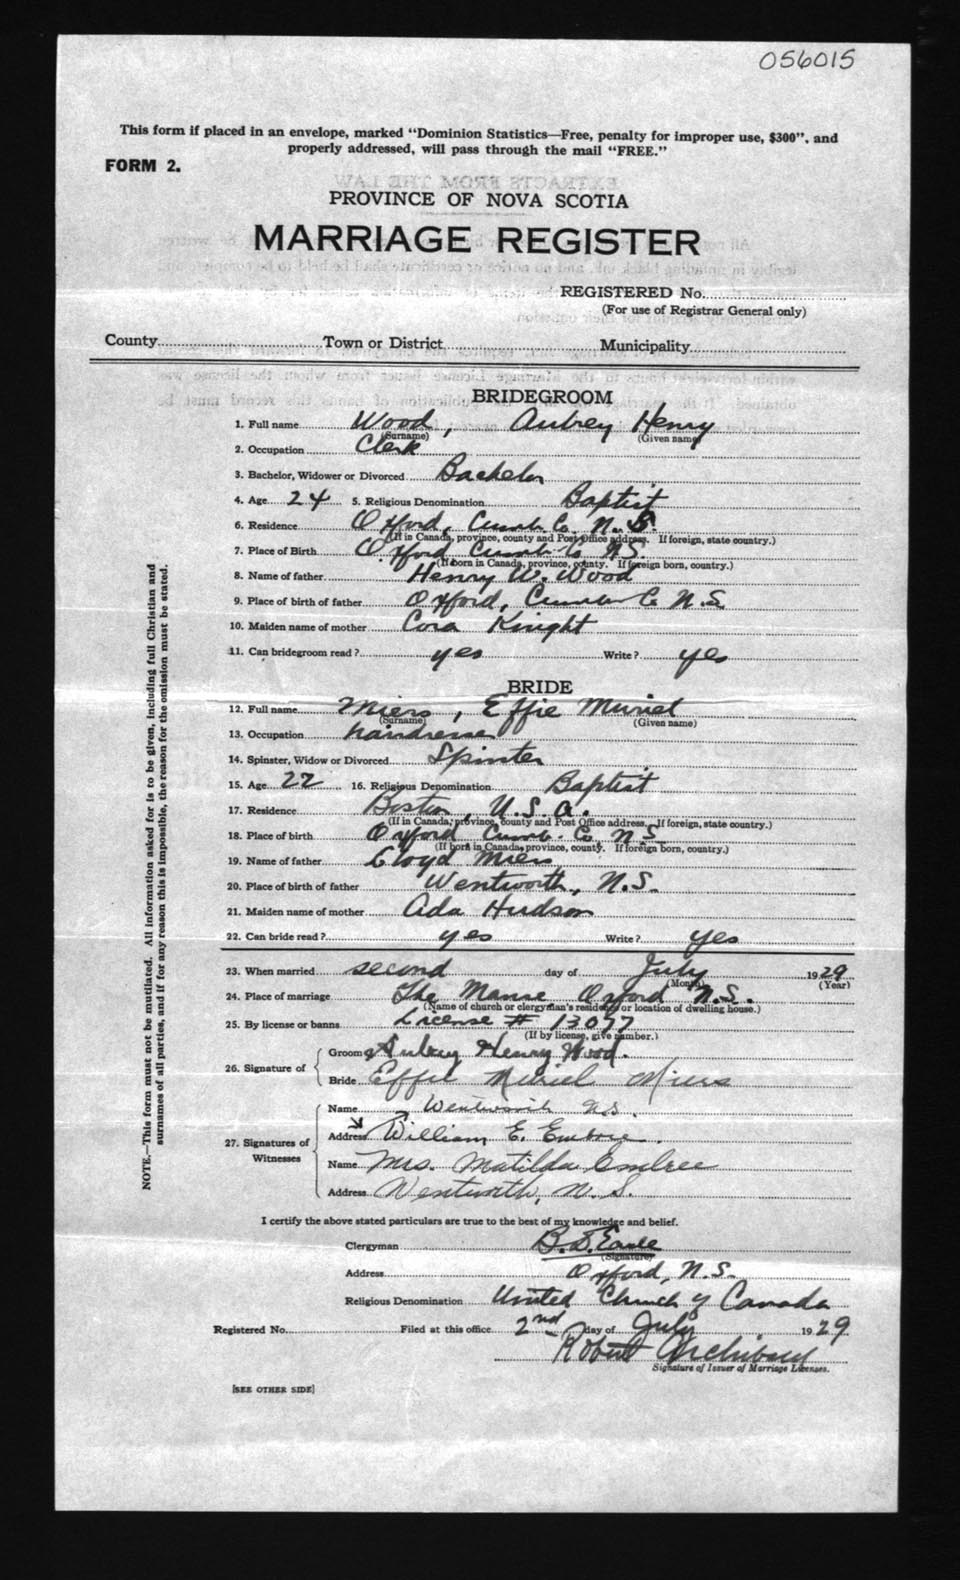 056015
This form if placed in an envelope, marked "Dominion Statistics—Free, penalty for improper use, $300", and
properly addressed, will pass through the mail "FREE."
FORM 2.
PROVINCE OF NOVA SCOTIA
MARRIAGE REGISTER
REGISTERED No.
(For use of Registrar General only)
County Town or District Municipality
BRIDEGROOM
1. Full name Wood, Aubrey Henry
(Surname) (Given name)
2. Occupation Clerk
3. Bachelor, Widower or Divorced Bachelor
4. Age 24 5. Religious Denomination Baptist
6. Residence Oxford, Cumb. Co. N. S.
(If in Canada, province, county and Post Office address. If foreign, state country.)
7. Place of Birth Oxford Cumb. Co NS.
(If born in Canada, province, county. If foreign born, country.)
8. Name of father Henry W. Wood
9. Place of birth of father Oxford, Cumb Co N.S.
10. Maiden name of mother Cora Knight
11. Can bridegroom read? yes Write? yes
BRIDE
12. Full name Miers, Effie Muriel
(Surname) (Given name)
13. Occupation hairdresser
14. Spinster, Widow or Divorced Spinster
15. Age 22 16. Religious Denomination Baptist
17. Residence Boston, U.S.A.
(If in Canada, province, county and Post Office address. If foreign, state country.)
18. Place of birth Oxford Cumb. Co NS
(If born in Canada, province, county. If foreign born, country.)
19. Name of father Lloyd Miers
20. Place of birth of father Wentworth, N.S.
21. Maiden name of mother Ada Hudson
22. Can bride read? yes Write? yes
23. When married second day of July 1929
(Month) (Year)
24. Place of marriage The Manse Oxford N.S.
(Name of church or clergyman's residence or location of dwelling house.)
25. By license or banns License # 13077
(If by license, give number.)
26. Signature of
Groom Aubrey Henry Wood.
Bride Effie Muriel Miers
27. Signatures of Witnesses
Name Wentworth N.S.
Address William E. Embree.
Name Mrs. Matilda Embree
Address Wentworth, N. S.
I certify the above stated particulars are true to the best of my knowledge and belief.
Clergyman B.D. Earle
(Signature)
Address Oxford, N.S.
Religious Denomination United Church of Canada
Registered No. Filed at this office 2nd day of July 1929
Robert Archibald
Signature of Issuer of Marriage Licenses.
[SEE OTHER SIDE]
NOTE.—This form must not be mutilated. All information asked for is to be given, including full Christian and
surnames of all parties, and if for any reason this is impossible, the reason for the omission must be stated.